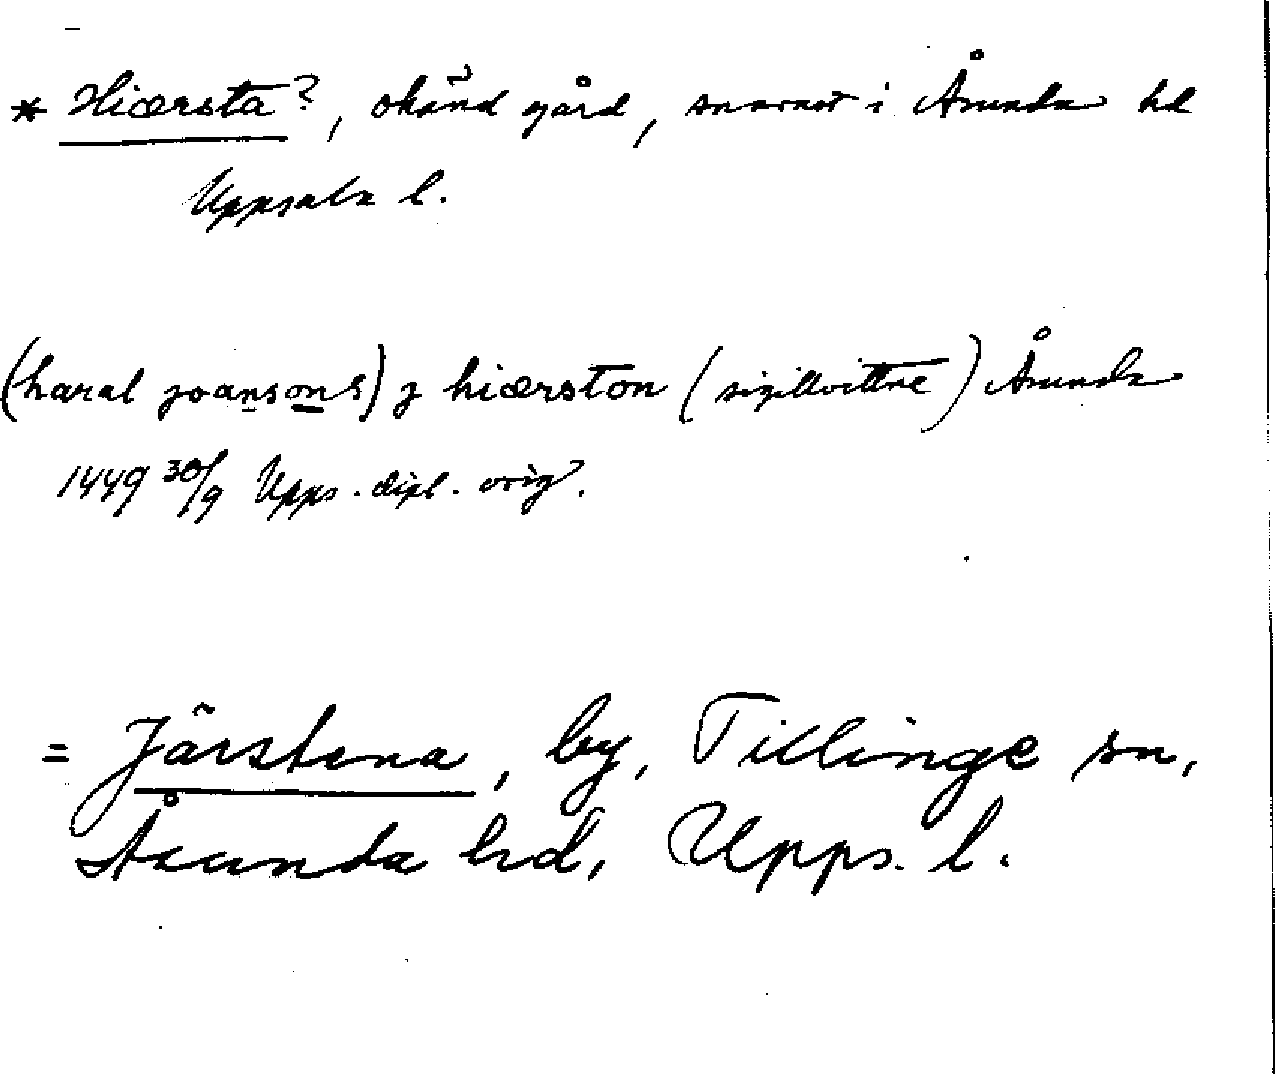 * Hiærsta?, okänd gård, snarast i Åsunda hd
Uppsala l.
(haral joansons) j hiærston (sigillvittne) Åsunda
1449 30/9 Upps. dipl. orig.
= Järstena, by, Tillinge sn,
Åsunda hd, Upps. l.